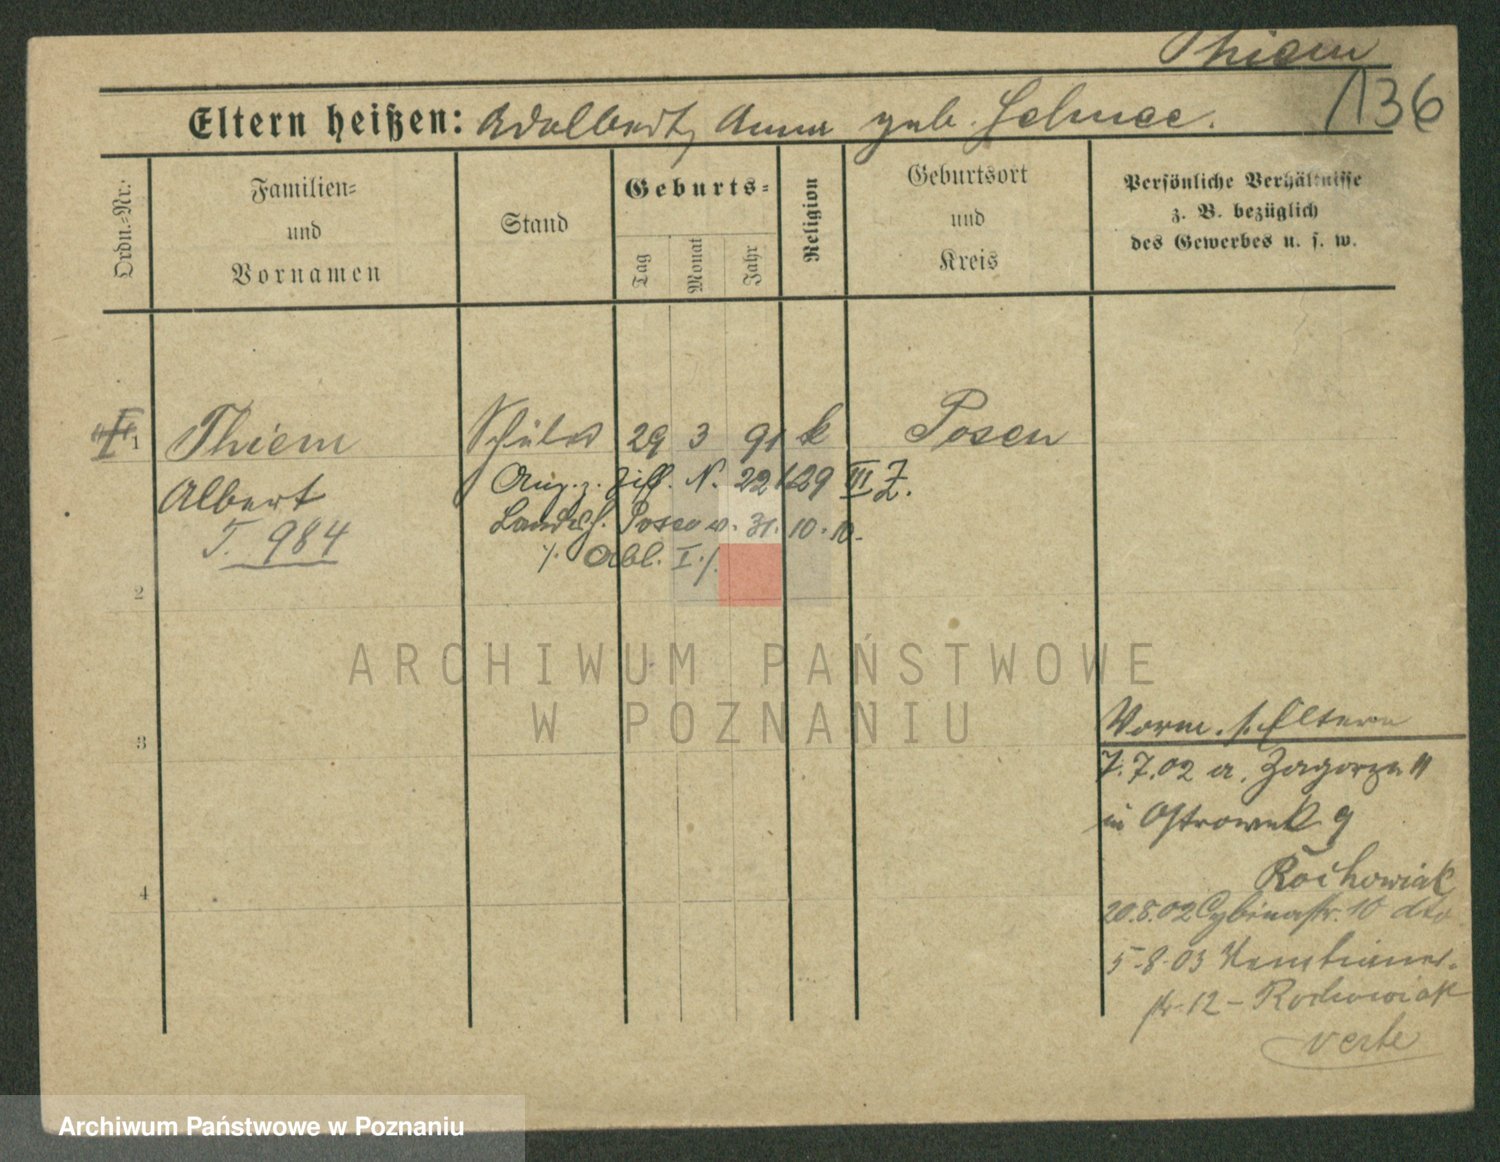 Thiem
136
Eltern heißen: Adalbert, Anna geb. Schnee.
Ordn.-Nr.
Familien- und Vornamen
Stand
Geburts-
Tag
Monat
Jahr
Religion
Geburtsort und Kreis
Persönliche Verhältnisse z. B. bezüglich des Gewerbes u. s. w.
1 Thiem Schüler 29 3 91 k Posen
Albert
Ang. z. Ziff. N. 221/29 III Z.
T. 984
Landesh. Posen v. 31. 10. 10.
/. Abl. I /.
2
ARCHIWUM PAŃSTWOWE
W POZNANIU
3
Vorm. s. Eltern
7.7.02 a. Zagorze 11
in Ostrowek 9
Rochowiak
4
20.8.02 Cybinastr. 10 dto
5.8.03
str. 12 - Rochowiak
verte
Archiwum Państwowe w Poznaniu